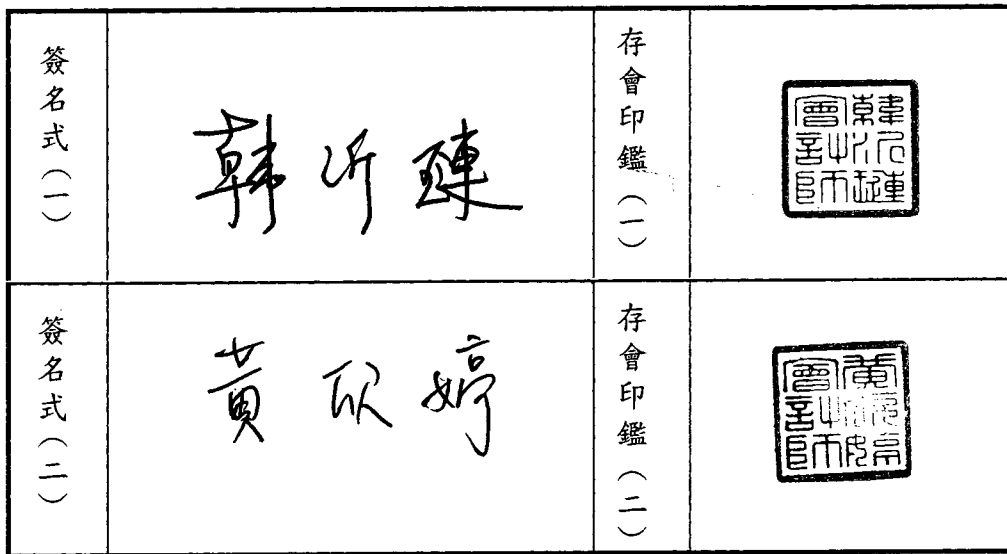 簽名式（一）
韓沂璉
存會印鑑（一）
韓沂璉會計師
簽名式（二）
黃欣婷
存會印鑑（二）
黃欣婷會計師